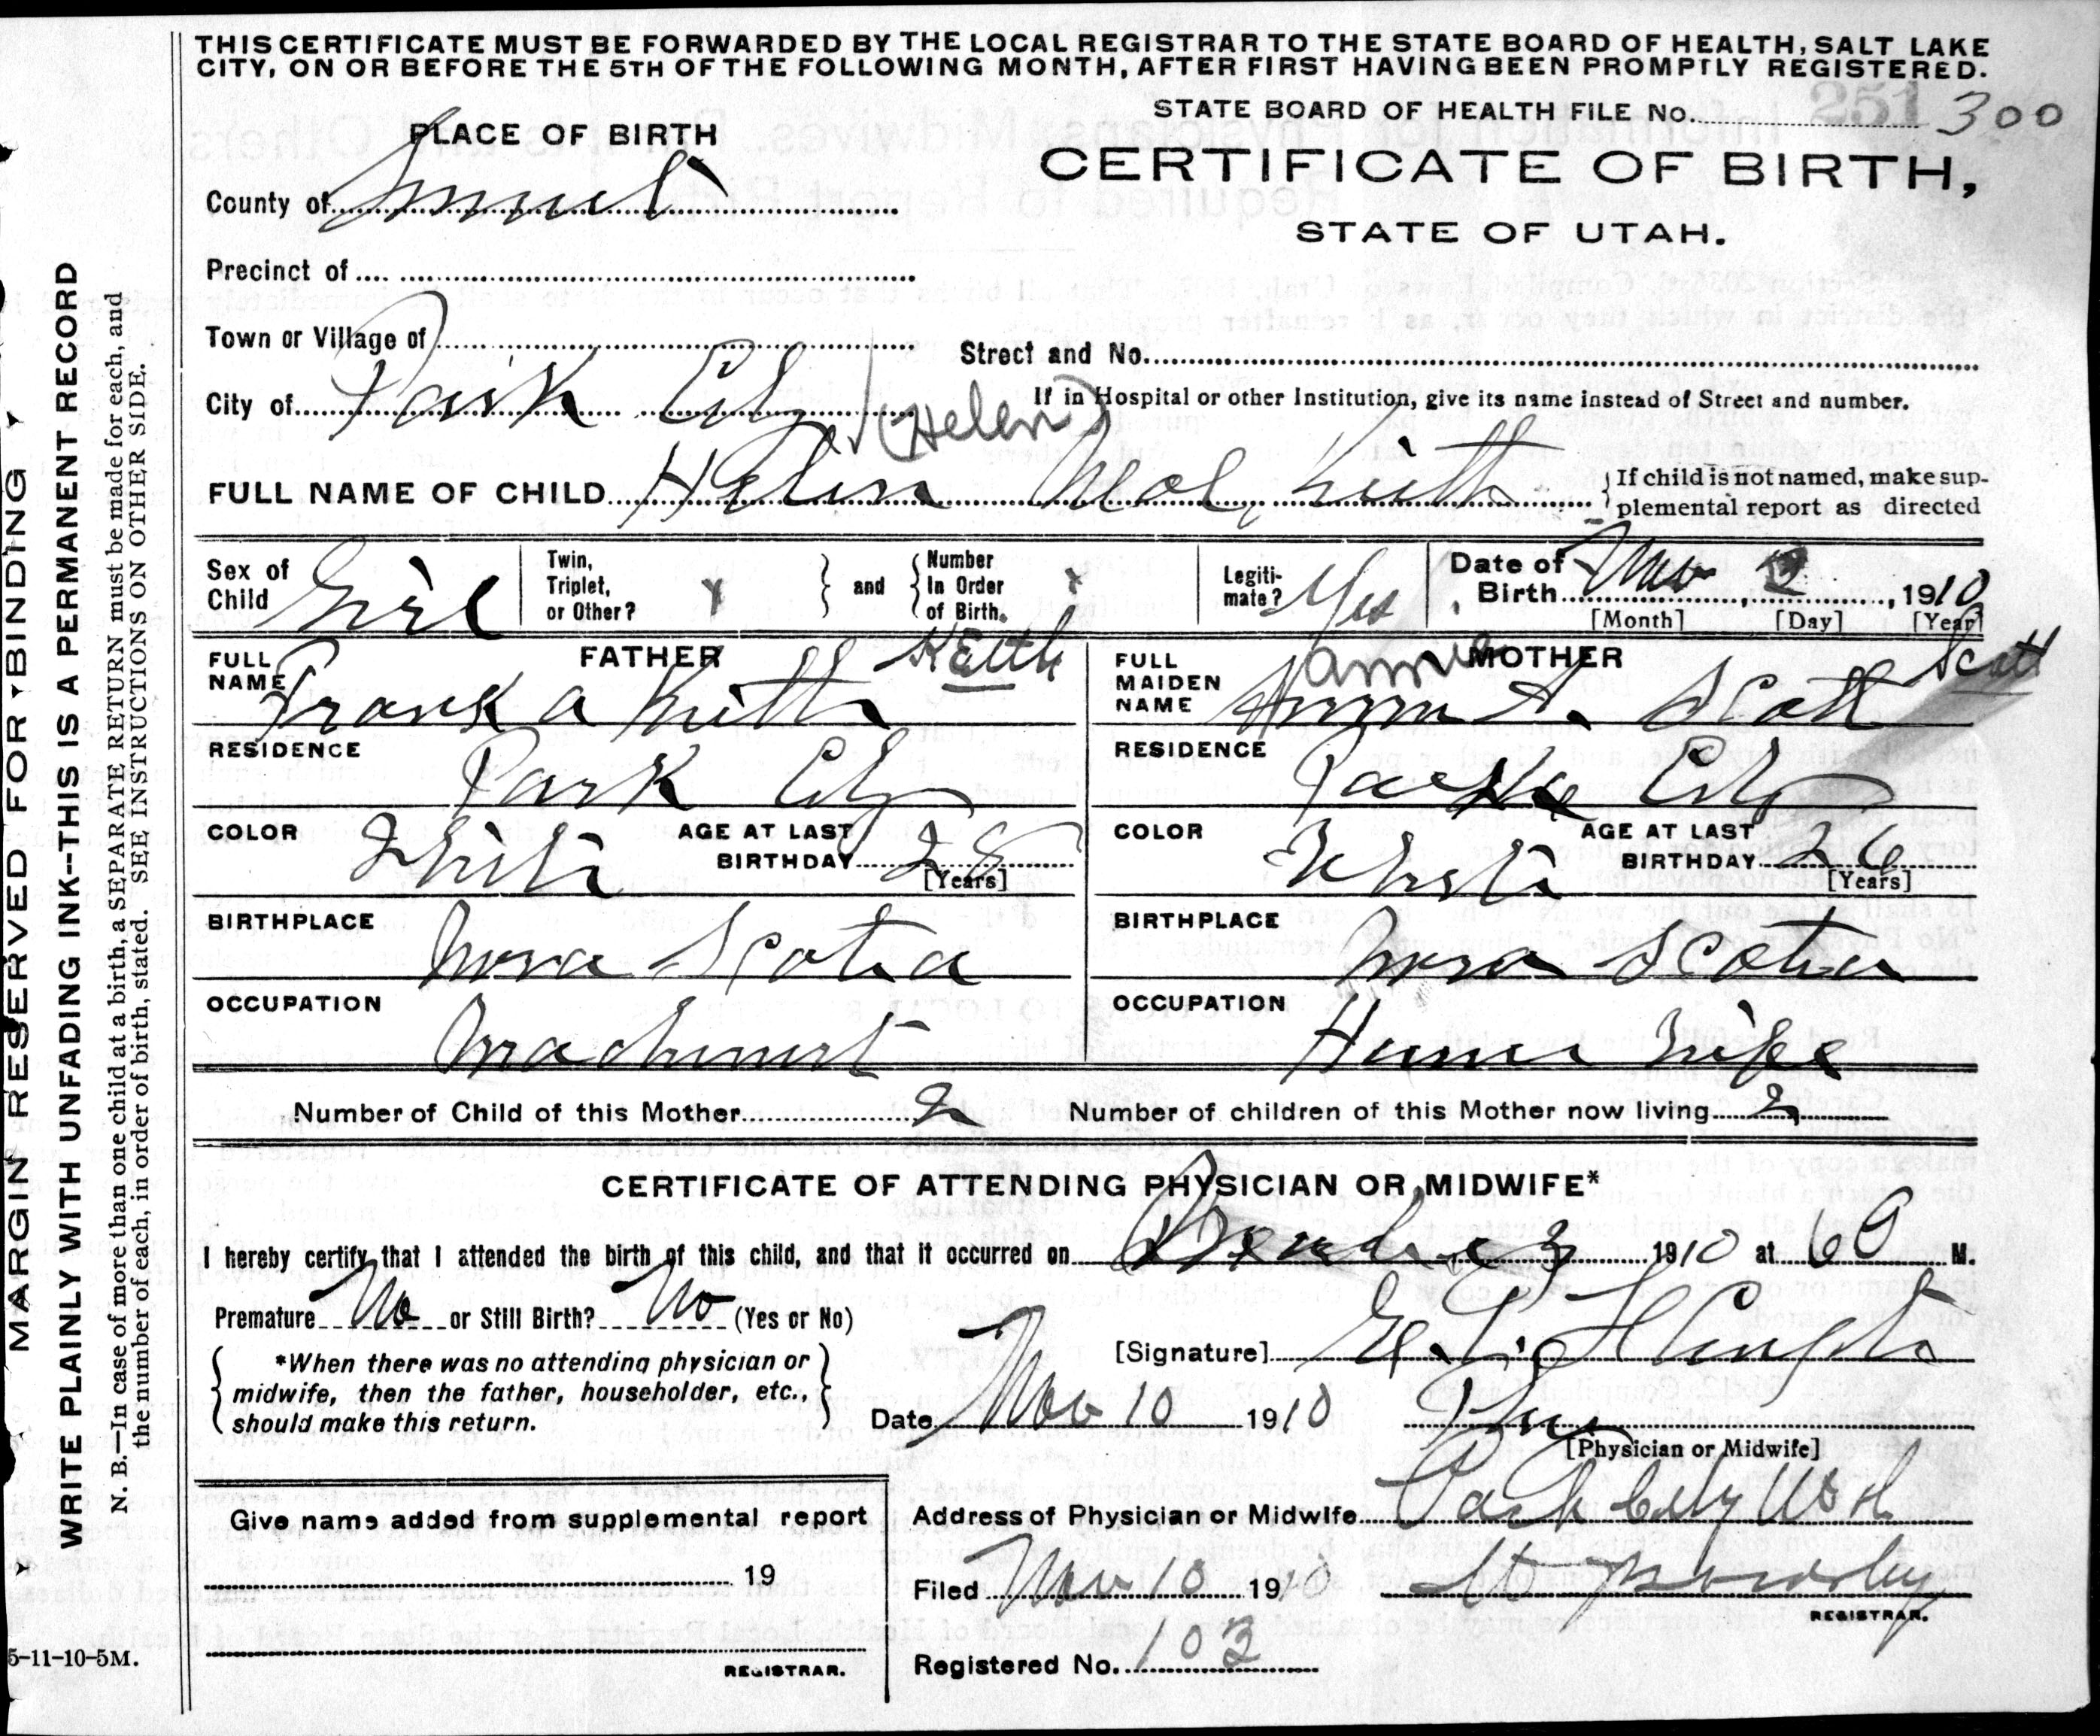 THIS CERTIFICATE MUST BE FORWARDED BY THE LOCAL REGISTRAR TO THE STATE BOARD OF HEALTH, SALT LAKE
CITY, ON OR BEFORE THE 5TH OF THE FOLLOWING MONTH, AFTER FIRST HAVING BEEN PROMPTLY REGISTERED.
STATE BOARD OF HEALTH FILE No. 251 300
PLACE OF BIRTH
CERTIFICATE OF BIRTH,
STATE OF UTAH.
County of Summit
Precinct of
Town or Village of
Street and No.
City of Park City
If in Hospital or other Institution, give its name instead of Street and number.
(Helen)
FULL NAME OF CHILD Helen Keith
If child is not named, make sup-
plemental report as directed
Sex of Child Girl
Twin, Triplet, or Other?
and
Number In Order of Birth.
Legiti-mate? Yes
Date of Birth Nov 3, 1910
[Month] [Day] [Year]
FATHER Keith
FULL NAME Frank A Keith
RESIDENCE Park City
COLOR White
AGE AT LAST BIRTHDAY 28 [Years]
BIRTHPLACE Nova Scotia
OCCUPATION Machinist
Annie MOTHER Scott
FULL MAIDEN NAME A. Scott
RESIDENCE Park City
COLOR White
AGE AT LAST BIRTHDAY 26 [Years]
BIRTHPLACE Nova Scotia
OCCUPATION House Wife
Number of Child of this Mother 2
Number of children of this Mother now living 2
CERTIFICATE OF ATTENDING PHYSICIAN OR MIDWIFE*
I hereby certify that I attended the birth of this child, and that it occurred on 3 1910 at 6 M.
Premature No or Still Birth? No (Yes or No)
*When there was no attending physician or
midwife, then the father, householder, etc.,
should make this return.
[Signature]
Date Nov 10 1910
[Physician or Midwife]
Give name added from supplemental report
19
REGISTRAR.
Address of Physician or Midwife Park City Utah
Filed Nov 10 1910
REGISTRAR.
Registered No. 103
MARGIN RESERVED FOR BINDING
WRITE PLAINLY WITH UNFADING INK--THIS IS A PERMANENT RECORD
N. B.—In case of more than one child at a birth, a SEPARATE RETURN must be made for each, and
the number of each, in order of birth, stated. SEE INSTRUCTIONS ON OTHER SIDE.
5-11-10-5M.